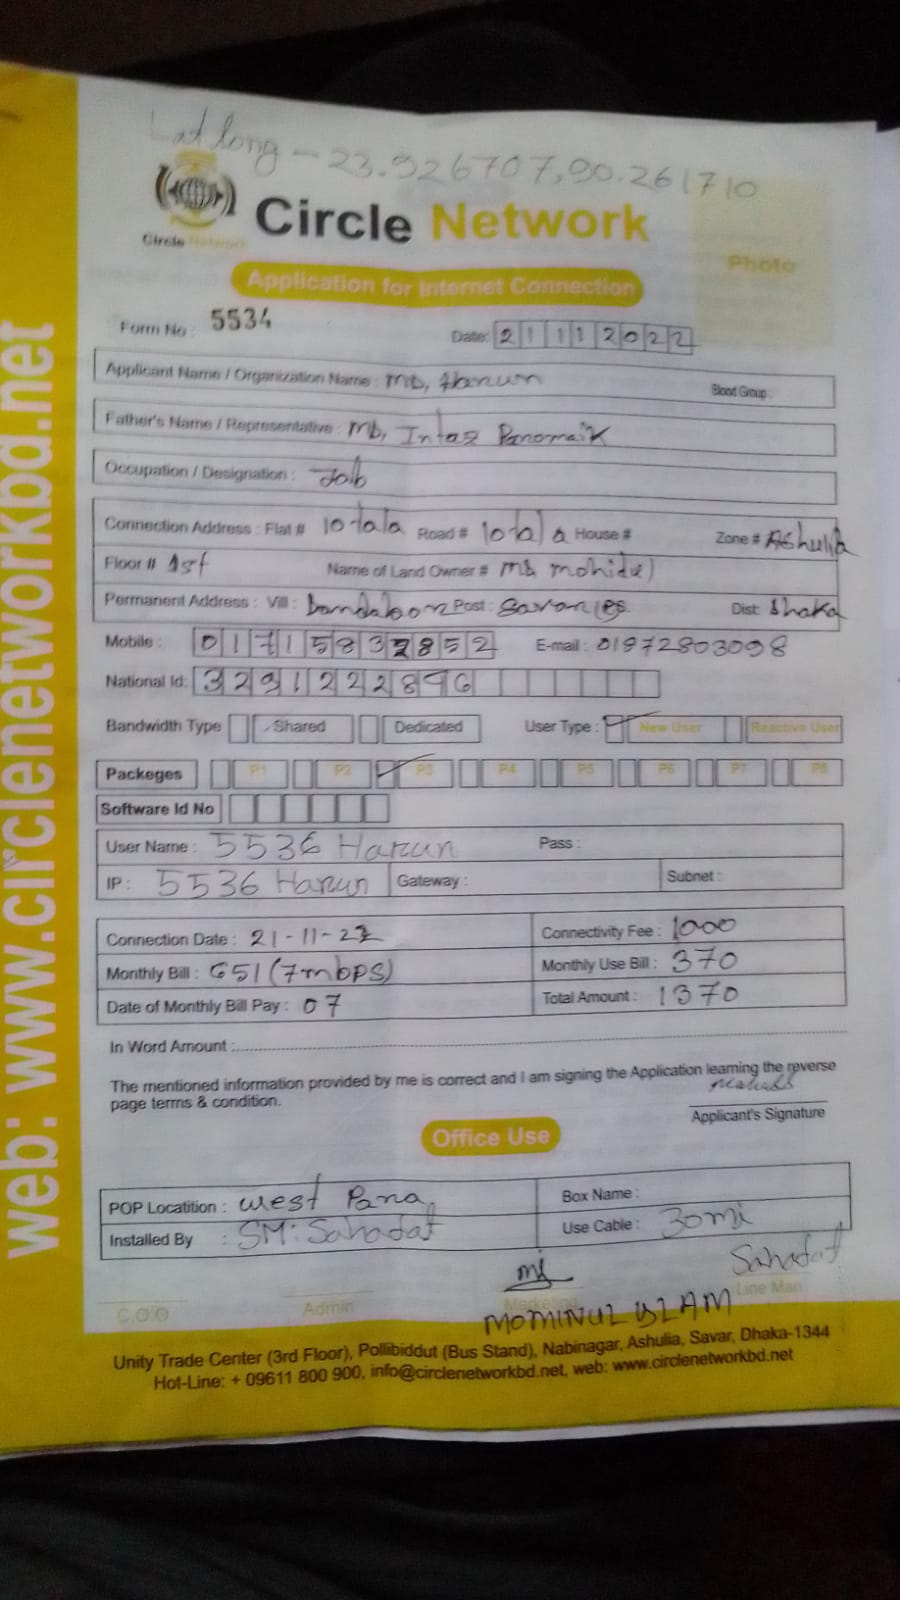 Lat long - 23.926707,90.261710
Circle Network
Circle Network
Photo
Application for Internet Connection
Form No : 5534
Date: 21112022
Applicant Name / Organization Name : MD, Harun
Blood Group :
Father's Name / Representative : MD, Intaz Panomaik
Occupation / Designation : Job
Connection Address : Flat # 10 tala Road # 10 tala House # Zone # Ashulia
Floor # 1st Name of Land Owner # MD mohidul
Permanent Address : Vill : Post : Dist: Dhaka
Mobile : 01715832852 E-mail : 01972803098
National Id: 3291222896
Bandwidth Type Shared Dedicated User Type : New User Reactive User
Packeges P1 P2 P3 P4 P5 P6 P7 P8
Software Id No
User Name : 5536 Harun Pass :
IP : 5536 Harun Gateway : Subnet :
Connection Date : 21-11-22 Connectivity Fee : 1000
Monthly Bill : 651 (7mbps) Monthly Use Bill : 370
Date of Monthly Bill Pay : 07 Total Amount : 1370
In Word Amount :
The mentioned information provided by me is correct and I am signing the Application learning the reverse
page terms & condition.
Applicant's Signature
Office Use
POP Locatition : West Para Box Name :
Installed By : SM: Sahadat Use Cable : 30mi
Sahadat
C.O.O Admin Marketing Line Man
MOMINUL ISLAM
Unity Trade Center (3rd Floor), Pollibiddut (Bus Stand), Nabinagar, Ashulia, Savar, Dhaka-1344
Hot-Line: + 09611 800 900, info@circlenetworkbd.net, web: www.circlenetworkbd.net
web: www.circlenetworkbd.net